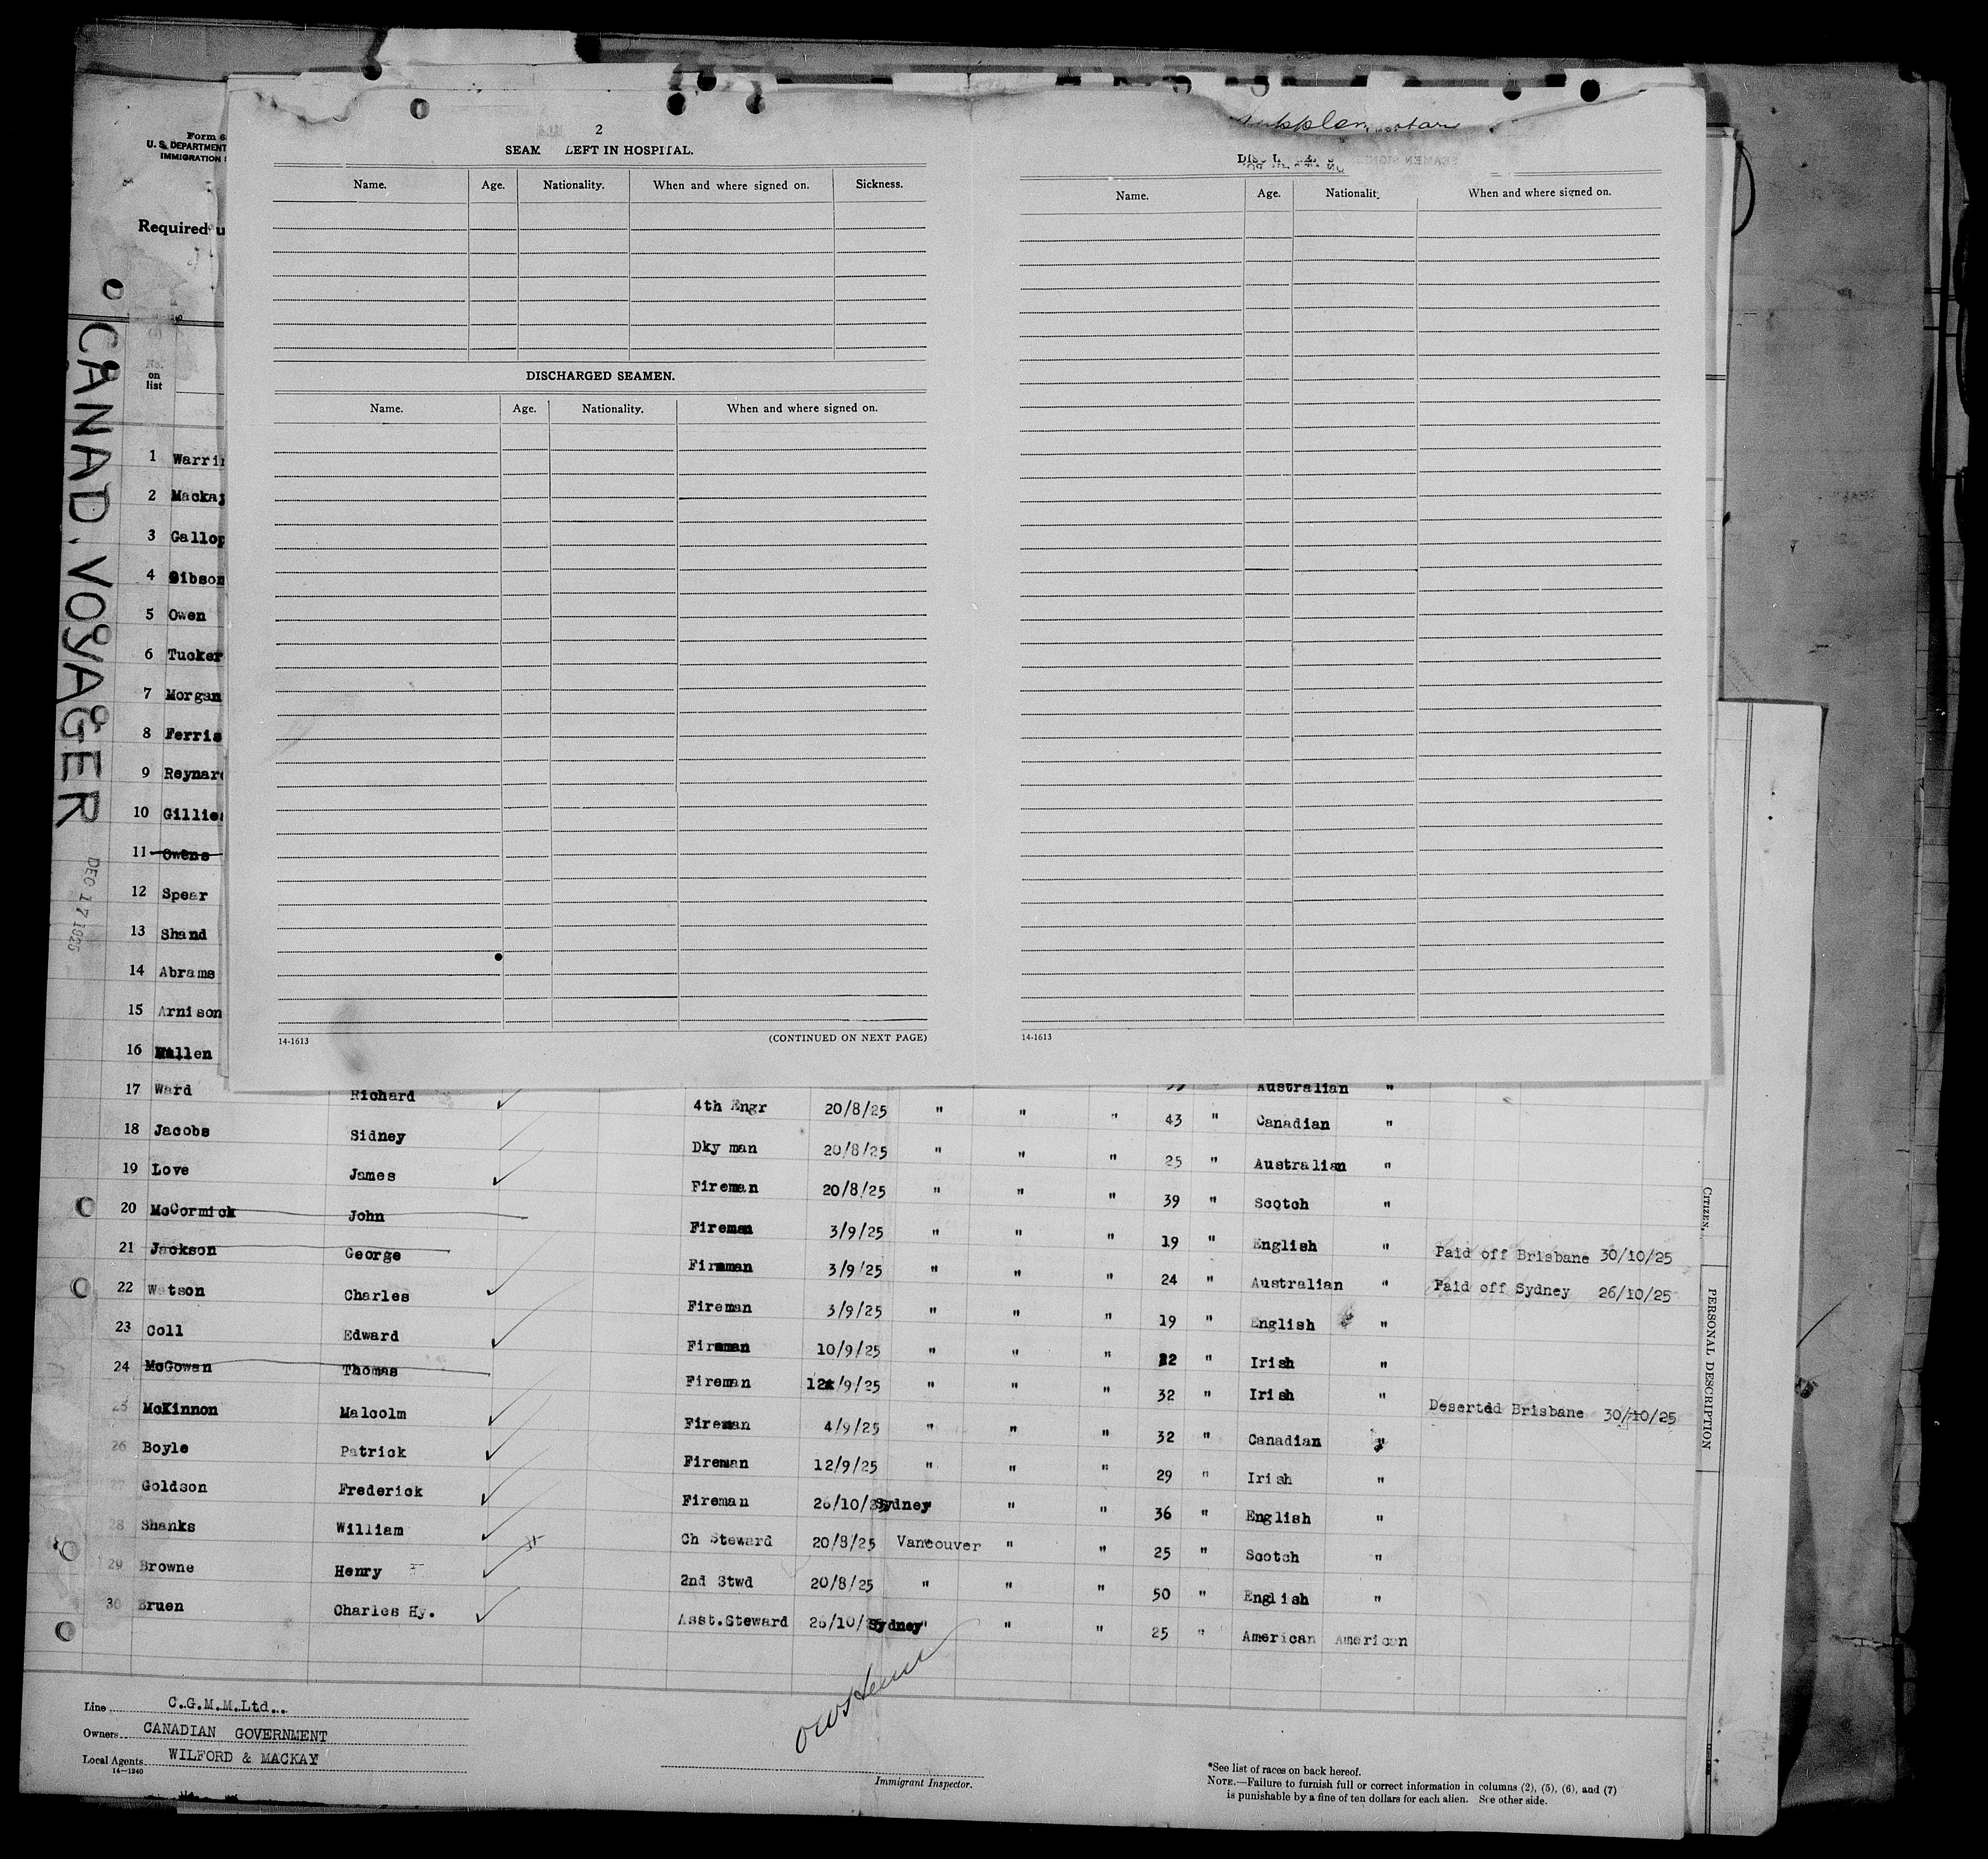 Form
U. S. DEPARTMENT
IMMIGRATION
Required
on
list
CANAD. VOYAGER
DEC 17 1925
2
LEFT IN HOSPITAL.
Name. Age. Nationality. When and where signed on. Sickness.
DISCHARGED SEAMEN.
Name. Age. Nationality. When and where signed on.
14-1613 (CONTINUED ON NEXT PAGE)
Name. Age. When and where signed on.
14-1613
1
2
3
4 Gibson
5 Owen
6 Tucker
7 Morgan
8 Ferris
9
10
11 Owens
12 Spear
13 Shand
14 Abrams
15 Arnison
16 Australian "
17 Ward Richard 4th Engr 20/8/25 " " " 43 " Canadian "
18 Jacobs Sidney Dky man 20/8/25 " " " 25 " Australian "
19 Love James Fireman 20/8/25 " " " 39 " Scotch "
20 McCormick John Fireman 3/9/25 " " " 19 " English " Paid off Brisbane 30/10/25
21 Jackson George Fireman 3/9/25 " " " 24 " Australian " Paid off Sydney 26/10/25
22 Watson Charles Fireman 3/9/25 " " " 19 " English "
23 Coll Edward Fireman 10/9/25 " " " 22 " Irish "
24 McGowan Thomas Fireman 12/9/25 " " " 32 " Irish " Deserted Brisbane 30/10/25
25 McKinnon Malcolm Fireman 4/9/25 " " " 32 " Canadian "
26 Boyle Patrick Fireman 12/9/25 " " " 29 " Irish "
27 Goldson Frederick Fireman 26/10/25 Sydney " " 36 " English "
28 Shanks William Ch Steward 20/8/25 Vancouver " " 25 " Scotch "
29 Browne Henry 2nd Stwd 20/8/25 " " " 50 " English "
30 Bruen Charles Hy. Asst.Steward 26/10/25 Sydney " " 25 " American American
CITIZEN.
PERSONAL DESCRIPTION
Line C.G.M.M.Ltd..
Owners CANADIAN GOVERNMENT
Local Agents WILFORD & MACKAY
14-1240
Immigrant Inspector.
*See list of races on back hereof.
NOTE.—Failure to furnish full or correct information in columns (2), (5), (6), and (7)
is punishable by a fine of ten dollars for each alien. See other side.